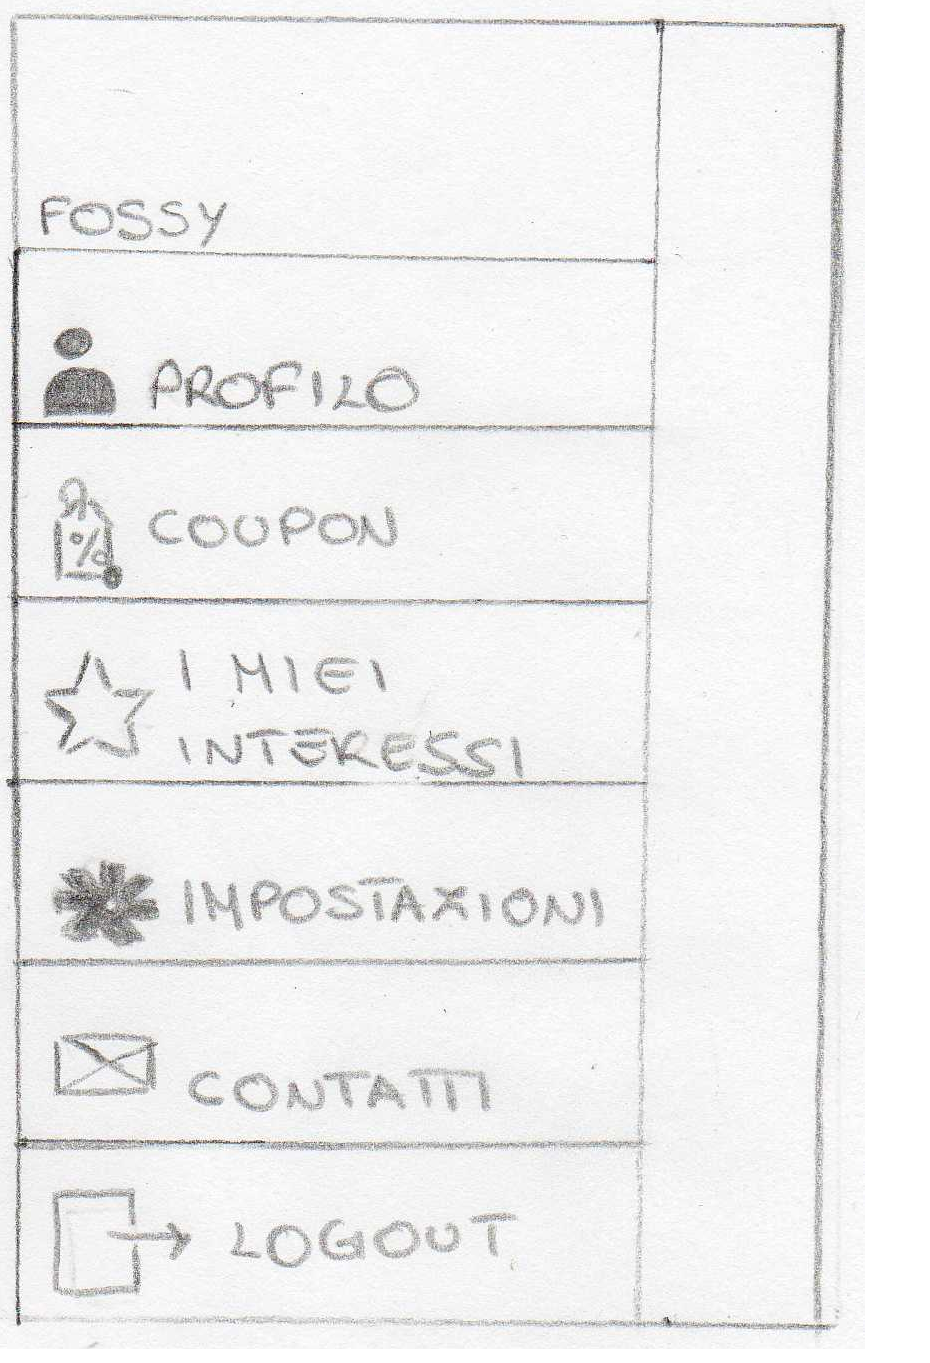 FOSSY
PROFILO
%
COUPON
I MIEI
INTERESSI
IMPOSTAZIONI
CONTATTI
LOGOUT